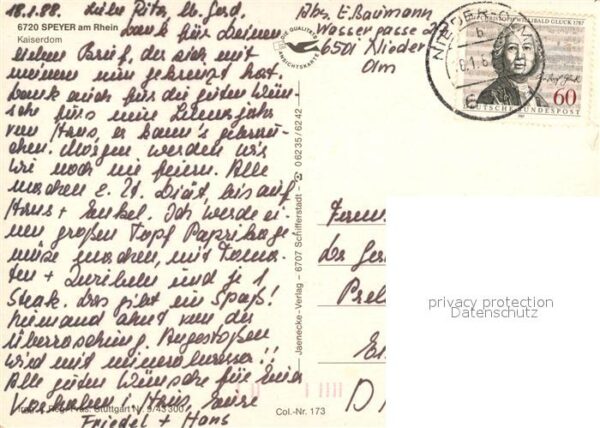 18.1.88. Liebe Rita, lb. Gerd,
6720 SPEYER am Rhein
Kaiserdom
dank für Deinen
lieben Brief, der sich mit
meinem nun gekreuzt hat.
Dank auch für die guten Wün-
sche fürs neue Lebensjahr
von Hans, er kann's gebrau-
chen. Morgen werden wir
wie noch nie feiern. Alle
machen z. Zt. Diät, bis auf
Hans + Enkel. Ich werde ei-
nen großen Topf Paprikage-
müse machen, mit Toma-
ten + Zwiebeln und je 1
Steak. Das gibt ein Spaß!
Niemand ahnt von der
Überraschung. Angestoßen
wird mit Mineralwasser!!
Alle guten Wünsche für Euer
Vorhaben i. Haus, Eure
Friedel + Hans
Stuttgart Nr. 9/43300
DIE QUALITÄTS
ANSICHTSKARTE
Jaenecke-Verlag – 6707 Schifferstadt – ✆ 06235/6242
Col.-Nr. 173
Abs. E. Baumann
Wassergasse 2
6501 Nieder
Olm
NIEDER-OLM
b
WILLIBALD GLUCK 1787
60
DEUTSCHE BUNDESPOST
Fam
Ger
privacy protection
Datenschutz
D